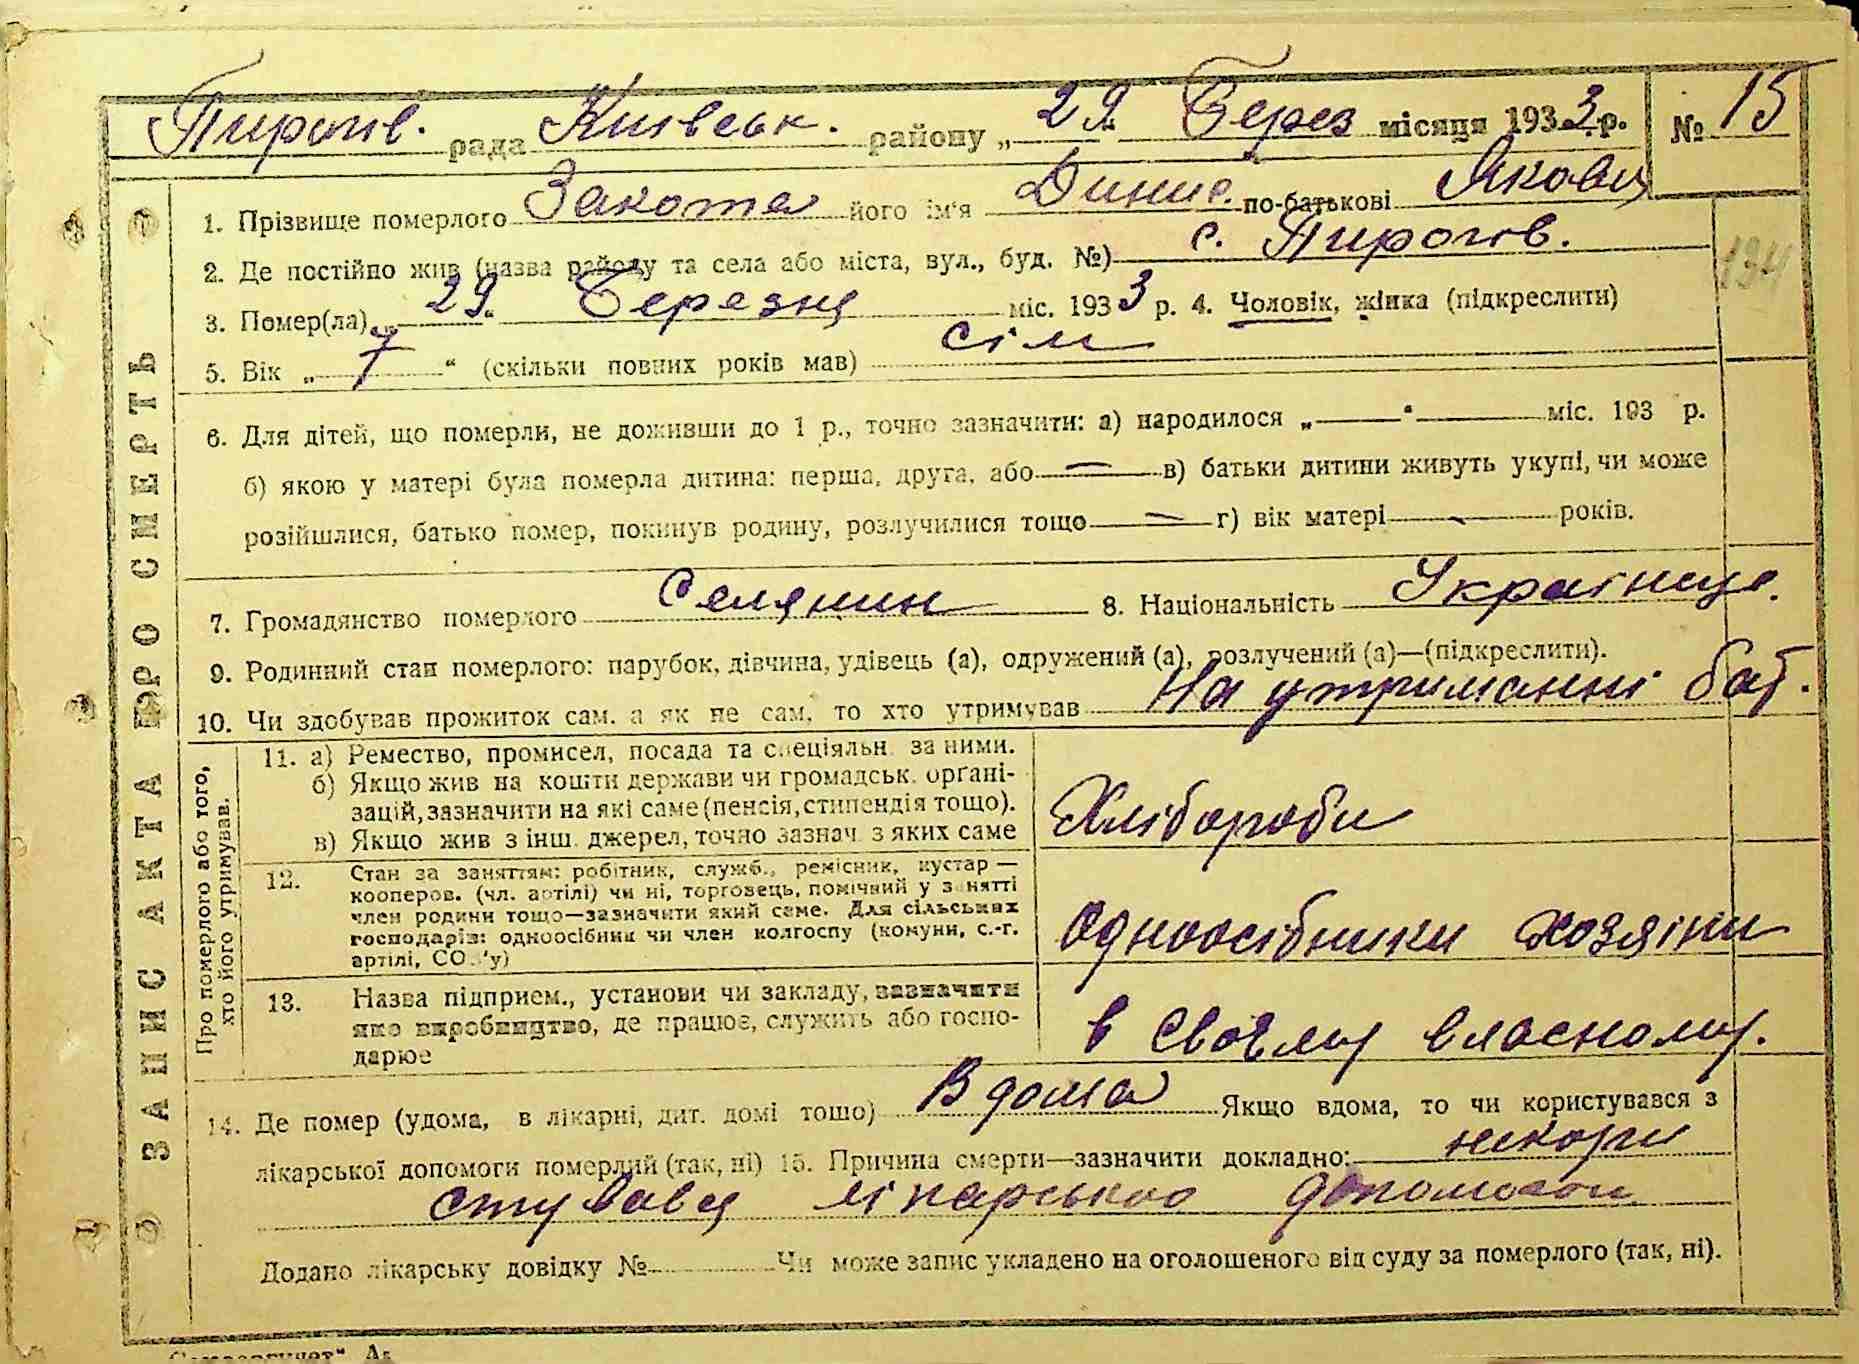 Пирогів. рада Київськ. району „29" Берез місяця 1933 р. № 15
ЗАПИС АКТА ПРО СМЕРТЬ
1. Прізвище померлого Закота його ім'я Динис. по-батькові Якович
2. Де постійно жив (назва району та села або міста, вул., буд. №) с. Пирогів.
194
3. Помер(ла) „29" Березня міс. 1933 р. 4. Чоловік, жінка (підкреслити)
5. Вік „7" (скільки повних років мав) сім
6. Для дітей, що померли, не доживши до 1 р., точно зазначити: а) народилося „—"— міс. 193 р.
б) якою у матері була померла дитина: перша, друга, або — в) батьки дитини живуть укупі, чи може
розійшлися, батько помер, покинув родину, розлучилися тощо — г) вік матері — років.
7. Громадянство померлого Селянин 8. Національність Українце.
9. Родинний стан померлого: парубок, дівчина, удівець (а), одружений (а), розлучений (а)—(підкреслити).
10. Чи здобував прожиток сам, а як не сам, то хто утримував На утриманні бат.
Про померлого або того, хто його утримував.
11. а) Ремество, промисел, посада та спеціяльн. за ними.
б) Якщо жив на кошти держави чи громадськ. органі-
зацій, зазначити на які саме (пенсія, стипендія тощо).
в) Якщо жив з інш. джерел, точно зазнач. з яких саме
Хлібороби
12. Стан за заняттям: робітник, служб., ремісник, кустар —
кооперов. (чл. артілі) чи ні, торговець, помічний у занятті
член родини тощо—зазначити який саме. Для сільських
господарів: одноосібник чи член колгоспу (комуни, с.-г.
артілі, СОЗ'у)
Одноосібники хозяіни
13. Назва підприєм., установи чи закладу, зазначити
яке виробництво, де працює, служить або госпо-
дарює
в своєму власному.
14. Де помер (удома, в лікарні, дит. домі тощо) Вдома Якщо вдома, то чи користувався з
лікарської допомоги померлий (так, ні) 15. Причина смерти—зазначити докладно: некори
стувавця лікарською допомогои
Додано лікарську довідку № Чи може запис укладено на оголошеного від суду за померлого (так, ні).